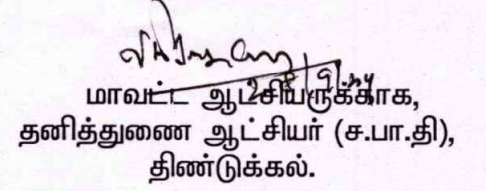 மாவட்ட ஆட்சியருக்காக,
தனித்துணை ஆட்சியர் (ச.பா.தி),
திண்டுக்கல்.